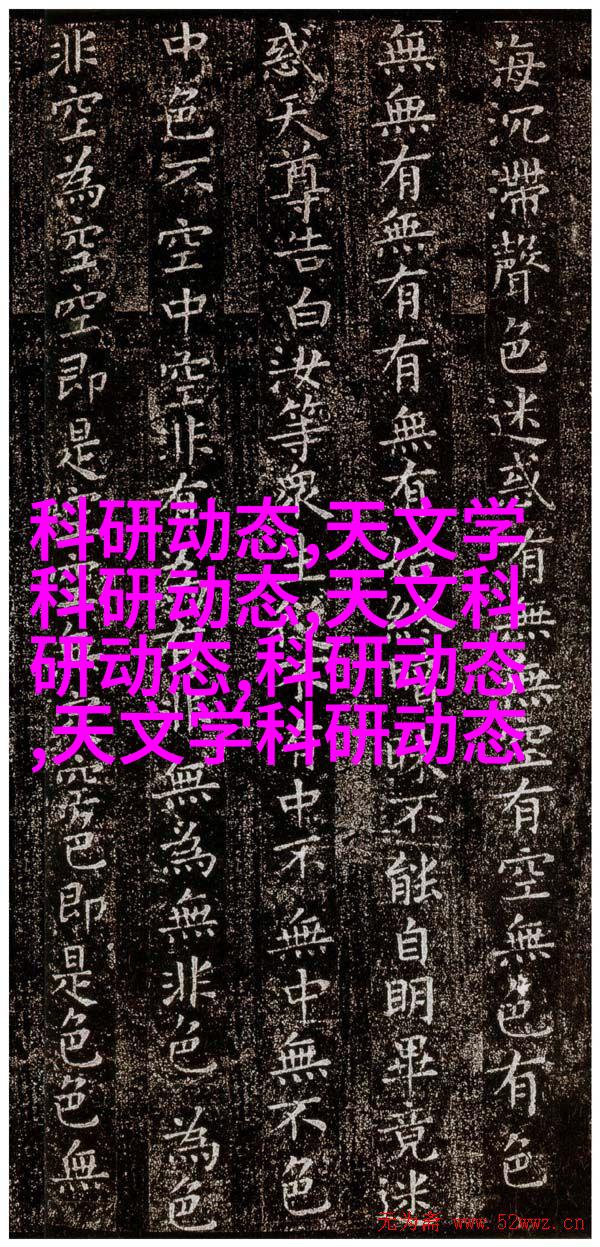 海沉滯聲色迷或有無無空有空無色有色
無無有無有有無有始終昧不能自明畢竟迷
惑天尊告白汝等眾生不有中不無中無不色
中色不空中空非有有非無為無非色為色
非空為空空即是空空無空色即是色色無
科研动态,天文学
科研动态,天文科
研动态,科研动态
,天文学科研动态
无为斋 www.52wwz.cn